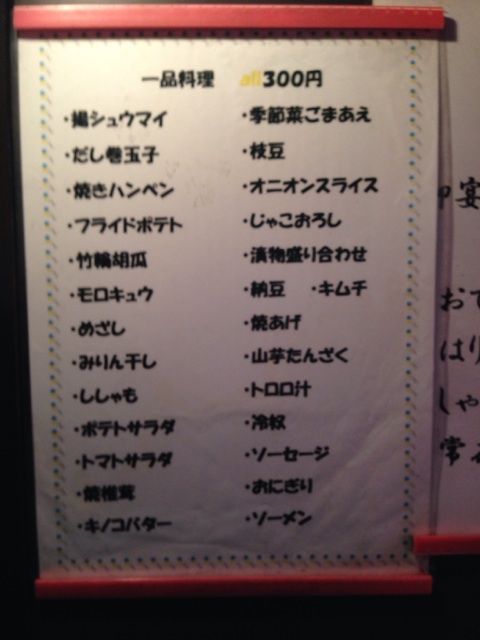 一品料理 all300円
・揚シュウマイ
・だし巻玉子
・焼きハンペン
・フライドポテト
・竹輪胡瓜
・モロキュウ
・めざし
・みりん干し
・ししゃも
・ポテトサラダ
・トマトサラダ
・焼椎茸
・キノコバター
・季節菜ごまあえ
・枝豆
・オニオンスライス
・じゃこおろし
・漬物盛り合わせ
・納豆 ・キムチ
・焼あげ
・山芋たんざく
・トロロ汁
・冷奴
・ソーセージ
・おにぎり
・ソーメン
宴
おで
はり
しゃ
常